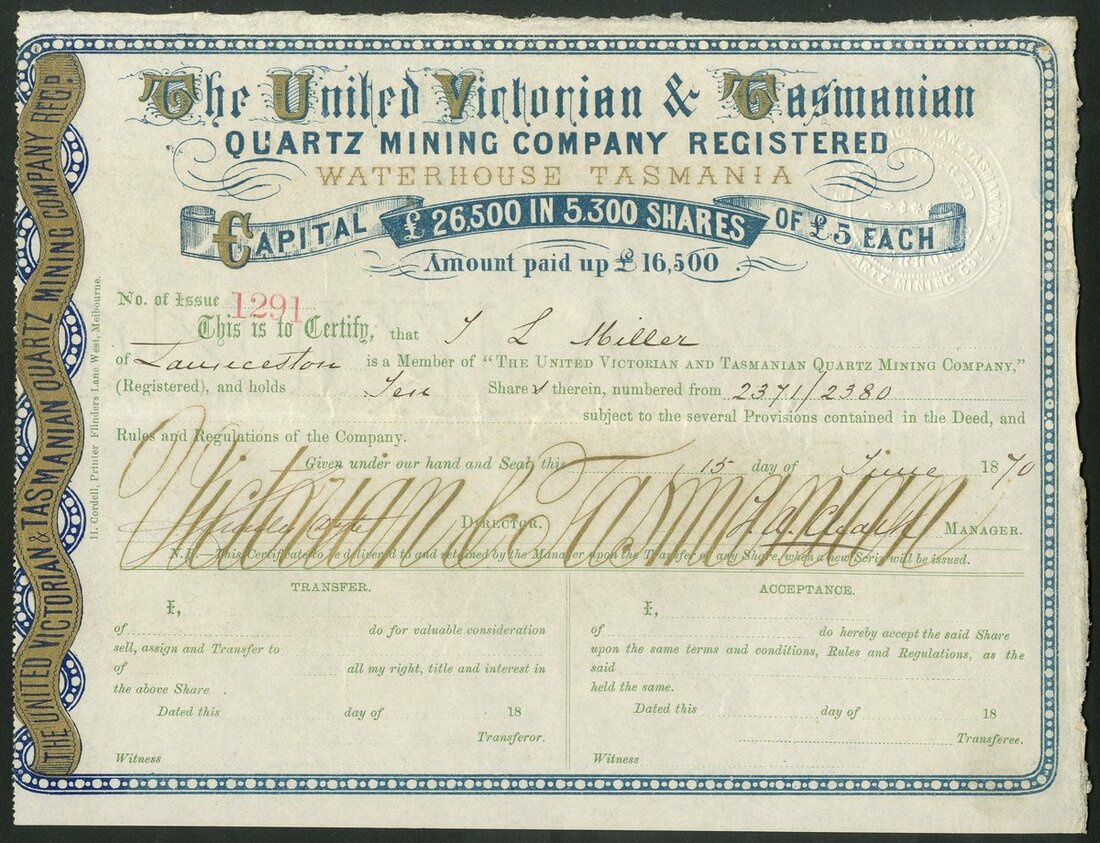 The United Victorian & Tasmanian
QUARTZ MINING COMPANY REGISTERED
WATERHOUSE TASMANIA
CAPITAL £ 26,500 IN 5.300 SHARES OF £5 EACH
Amount paid up £ 16,500
No. of Issue 1291
This is to Certify, that L Miller
of Launceston is a Member of "THE UNITED VICTORIAN AND TASMANIAN QUARTZ MINING COMPANY,"
(Registered), and holds Ten Shares therein, numbered from 2371/2380
subject to the several Provisions contained in the Deed, and
Rules and Regulations of the Company.
Given under our hand and Seal, this 15 day of June 1870
Victorian & Tasmanian
DIRECTOR. MANAGER.
N.B.—This Certificate to be delivered to and retained by the Manager upon the Transfer of any Share, when a new Scrip will be issued.
TRANSFER.
I,
of do for valuable consideration
sell, assign and Transfer to
of all my right, title and interest in
the above Share .
Dated this day of 18
Transferor.
Witness
ACCEPTANCE.
I,
of do hereby accept the said Share
upon the same terms and conditions, Rules and Regulations, as the
said
held the same.
Dated this day of 18
Transferee.
Witness
THE UNITED VICTORIAN & TASMANIAN QUARTZ MINING COMPANY REGD.
H. Cordell, Printer Flinders Lane West, Melbourne.